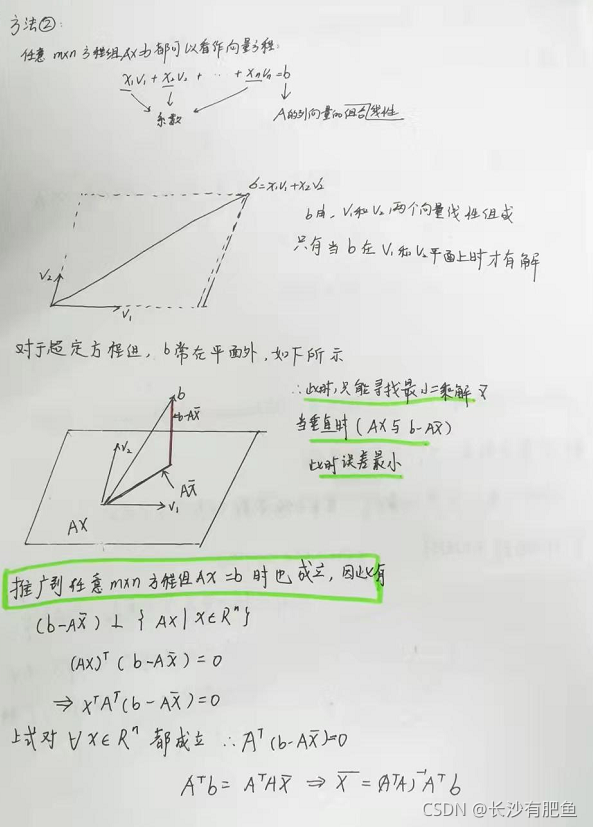 方法②:
任意 m×n 方程组 Ax=b 都可以看作向量方程:
x₁v₁ + x₂v₂ + ⋯ + xₙvₙ = b
系数
A的列向量的组合线性
b=x₁v₁+x₂v₂
b由 v₁和v₂ 两个向量线性组成
只有当 b 在 v₁和v₂平面上时才有解
v₂
v₁
对于超定方程组, b常在平面外, 如下所示
∴此时,只能寻找最小二乘解 x̄
当垂直时 (AX与 b-Ax̄)
此时误差最小
b
b-Ax̄
v₂
Ax̄
v₁
AX
推广到任意 m×n 方程组 Ax=b 时也成立, 因此有
(b-Ax̄) ⊥ { AX | x∈Rⁿ }
(AX)ᵀ (b-Ax̄) = 0
⇒ xᵀAᵀ(b-Ax̄)=0
上式对 ∀x∈Rⁿ 都成立 ∴ Aᵀ(b-Ax̄)=0
Aᵀb = AᵀAx̄ ⇒ x̄ = (AᵀA)⁻¹Aᵀb
CSDN @长沙有肥鱼